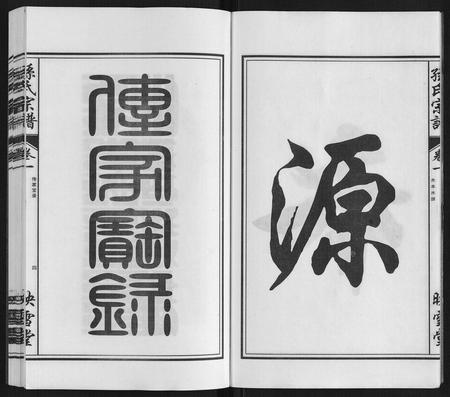 孫氏宗譜
卷一
映雪堂
源
傳家寶錄
孫氏宗譜
卷一
傳家寶录
四
映雪堂